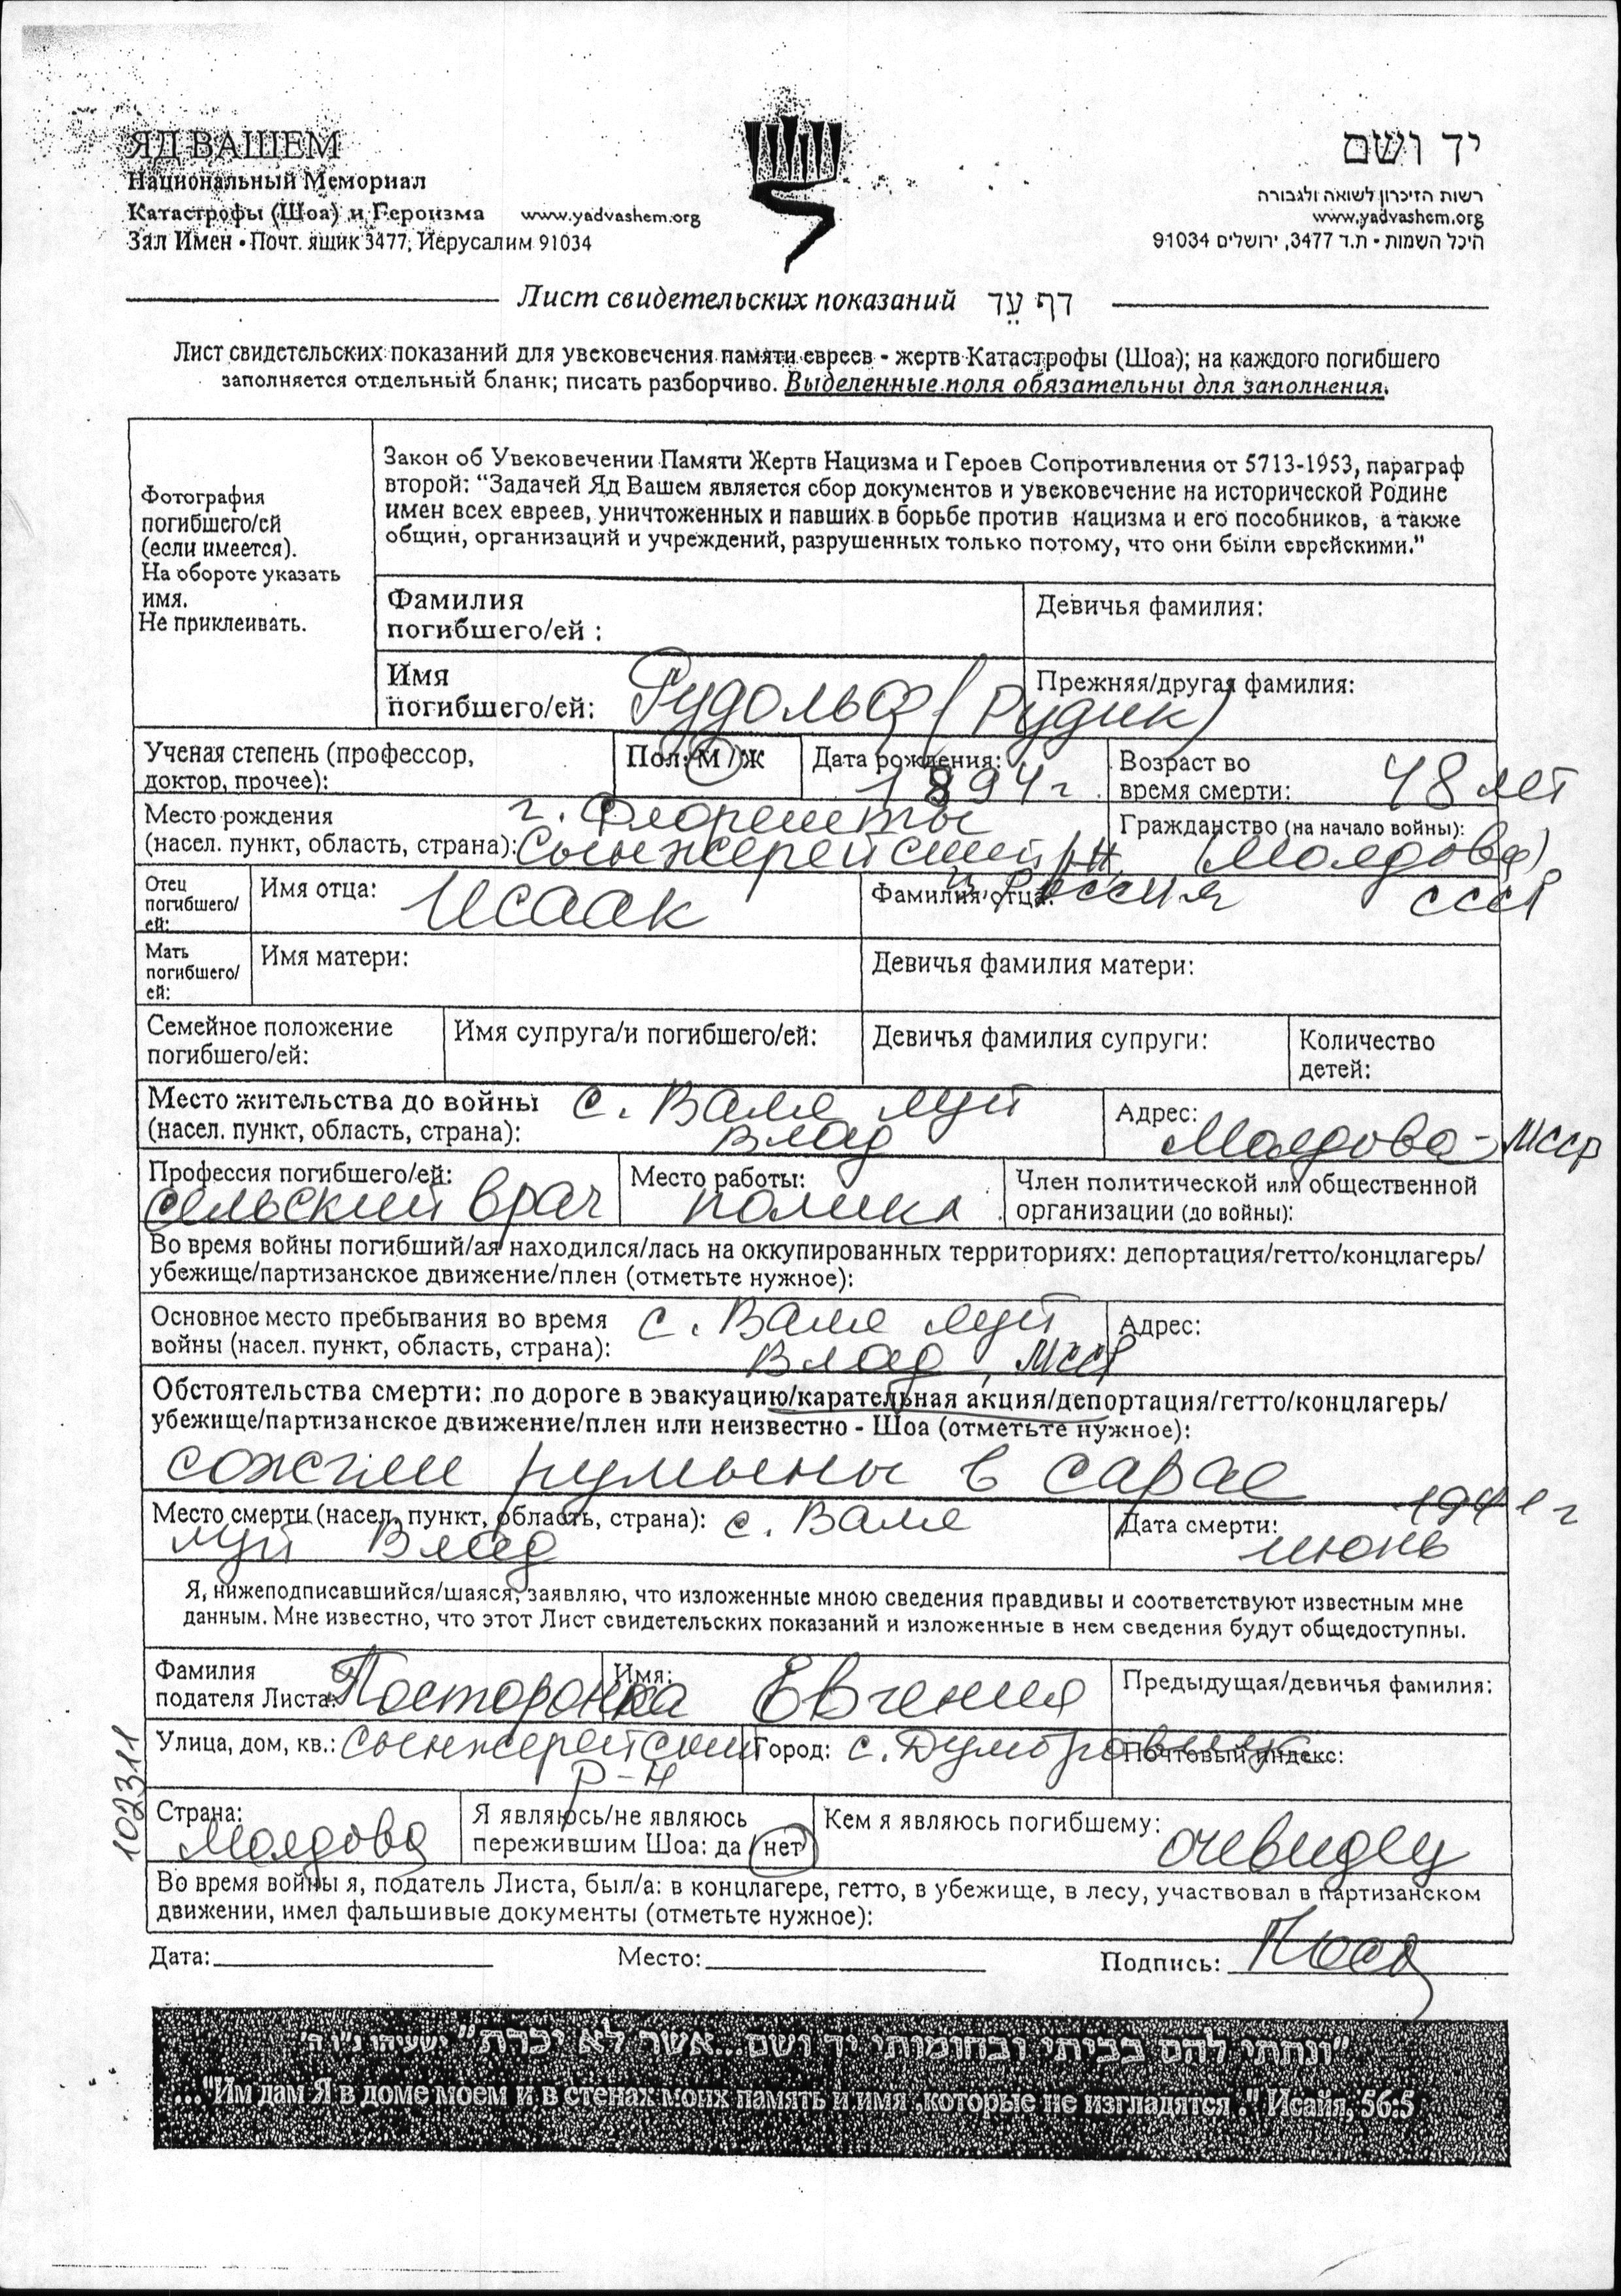 ЯД ВАШЕМ
Национальный Мемориал
Катастрофы (Шоа) и Героизма www.yadvashem.org
Зал Имен • Почт. ящик 3477, Иерусалим 91034
יד ושם
רשות הזיכרון לשואה ולגבורה
www.yadvashem.org
היכל השמות - ת.ד 3477, ירושלים 91034
Лист свидетельских показаний דף עֵד
Лист свидетельских показаний для увековечения памяти евреев - жертв Катастрофы (Шоа); на каждого погибшего
заполняется отдельный бланк; писать разборчиво. Выделенные поля обязательны для заполнения.
Фотография
погибшего/ей
(если имеется).
На обороте указать
имя.
Не приклеивать.
Закон об Увековечении Памяти Жертв Нацизма и Героев Сопротивления от 5713-1953, параграф
второй: “Задачей Яд Вашем является сбор документов и увековечение на исторической Родине
имен всех евреев, уничтоженных и павших в борьбе против нацизма и его пособников, а также
общин, организаций и учреждений, разрушенных только потому, что они были еврейскими.”
Фамилия
погибшего/ей :
Девичья фамилия:
Имя
погибшего/ей: Рудольф (Рудик)
Прежняя/другая фамилия:
Ученая степень (профессор,
доктор, прочее):
Пол: М / Ж
Дата рождения:
1894 г.
Возраст во
время смерти: 48 лет
Место рождения г. Флорешты
(насел. пункт, область, страна): Сынжерейский р-н
Россия
Гражданство (на начало войны):
(Молдова)
СССР
Отец
погибшего/
ей:
Имя отца: Исаак
Фамилия отца:
Мать
погибшего/
ей:
Имя матери:
Девичья фамилия матери:
Семейное положение
погибшего/ей:
Имя супруга/и погибшего/ей:
Девичья фамилия супруги:
Количество
детей:
Место жительства до войны с. Валя луй
(насел. пункт, область, страна): Влад
Адрес:
Молдова - МССР
Профессия погибшего/ей:
сельский врач
Место работы:
Член политической или общественной
организации (до войны):
Во время войны погибший/ая находился/лась на оккупированных территориях: депортация/гетто/концлагерь/
убежище/партизанское движение/плен (отметьте нужное):
Основное место пребывания во время с. Валя луй
войны (насел. пункт, область, страна): Влад, МССР
Адрес:
Обстоятельства смерти: по дороге в эвакуацию/карательная акция/депортация/гетто/концлагерь/
убежище/партизанское движение/плен или неизвестно - Шоа (отметьте нужное):
сожгли румыны в сарае
Место смерти (насел. пункт, область, страна): с. Валя
луй Влад
Дата смерти: 1941 г
июнь
Я, нижеподписавшийся/шаяся, заявляю, что изложенные мною сведения правдивы и соответствуют известным мне
данным. Мне известно, что этот Лист свидетельских показаний и изложенные в нем сведения будут общедоступны.
Фамилия
подателя Листа: Посторонка
Имя: Евгения
Предыдущая/девичья фамилия:
Улица, дом, кв.: Сынжерейский
р-н
Город: с. Думбровица
Почтовый индекс:
Страна:
Молдова
Я являюсь/не являюсь
пережившим Шоа: да / нет
Кем я являюсь погибшему:
очевидец
Во время войны я, податель Листа, был/а: в концлагере, гетто, в убежище, в лесу, участвовал в партизанском
движении, имел фальшивые документы (отметьте нужное):
Дата: Место: Подпись:
102311
"ונתתי להם בביתי ובחומותי יד ושם...אשר לא יכרת" ישעיהו נ"ו ה'
..."Им дам Я в доме моем и в стенах моих память и имя ,которые не изгладятся ." Исайя, 56:5